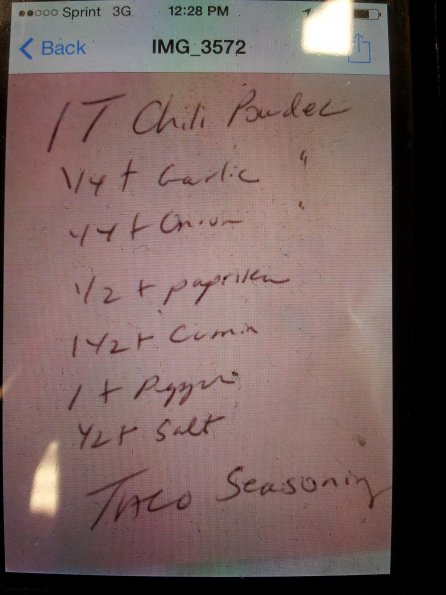 Sprint 3G 12:28 PM
Back IMG_3572
1 T Chili Powder
1/4 t Garlic "
1/4 t Onion "
1/2 t paprika
1 1/2 t Cumin
1 t
1/2 t Salt
Taco Seasoning